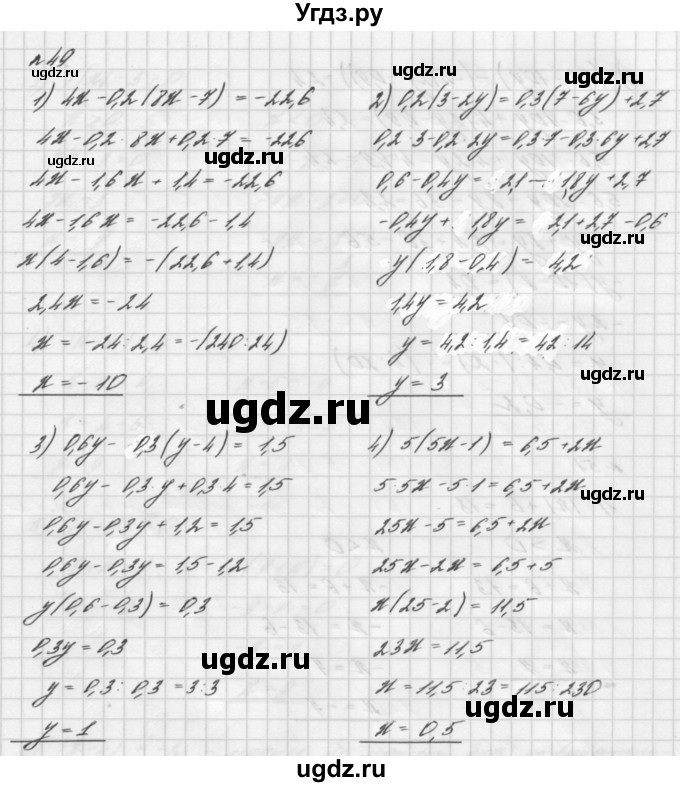 Угдз.ру
№49
1) 4x - 0,2(8x - 7) = -22,6
4x - 0,2 · 8x + 0,2 · 7 = -22,6
4x - 1,6x + 1,4 = -22,6
4x - 1,6x = -22,6 - 1,4
x(4 - 1,6) = -(22,6 + 1,4)
2,4x = -24
x = -24 : 2,4 = -(240 : 24)
x = -10
2) 0,2(3 - 2y) = 0,3(7 - 6y) + 2,7
0,2 · 3 - 0,2 · 2y = 0,3·7 - 0,3·6y + 2,7
0,6 - 0,4y = 2,1 - 1,8y + 2,7
-0,4y + 1,8y = 2,1 + 2,7 - 0,6
y(1,8 - 0,4) = 4,2
1,4y = 4,2
y = 4,2 : 1,4 = 42 : 14
y = 3
3) 0,6y - 0,3(y - 4) = 1,5
0,6y - 0,3·y + 0,3·4 = 1,5
0,6y - 0,3y + 1,2 = 1,5
0,6y - 0,3y = 1,5 - 1,2
y(0,6 - 0,3) = 0,3
0,3y = 0,3
y = 0,3 : 0,3 = 3 : 3
y = 1
4) 5(5x - 1) = 6,5 + 2x
5·5x - 5·1 = 6,5 + 2x
25x - 5 = 6,5 + 2x
25x - 2x = 6,5 + 5
x(25 - 2) = 11,5
23x = 11,5
x = 11,5 : 23 = 115 : 230
x = 0,5
ugdz.ru
ugdz.ru
ugdz.ru
ugdz.ru
ugdz.ru
ugdz.ru
ugdz.ru
ugdz.ru
ugdz.ru
ugdz.ru